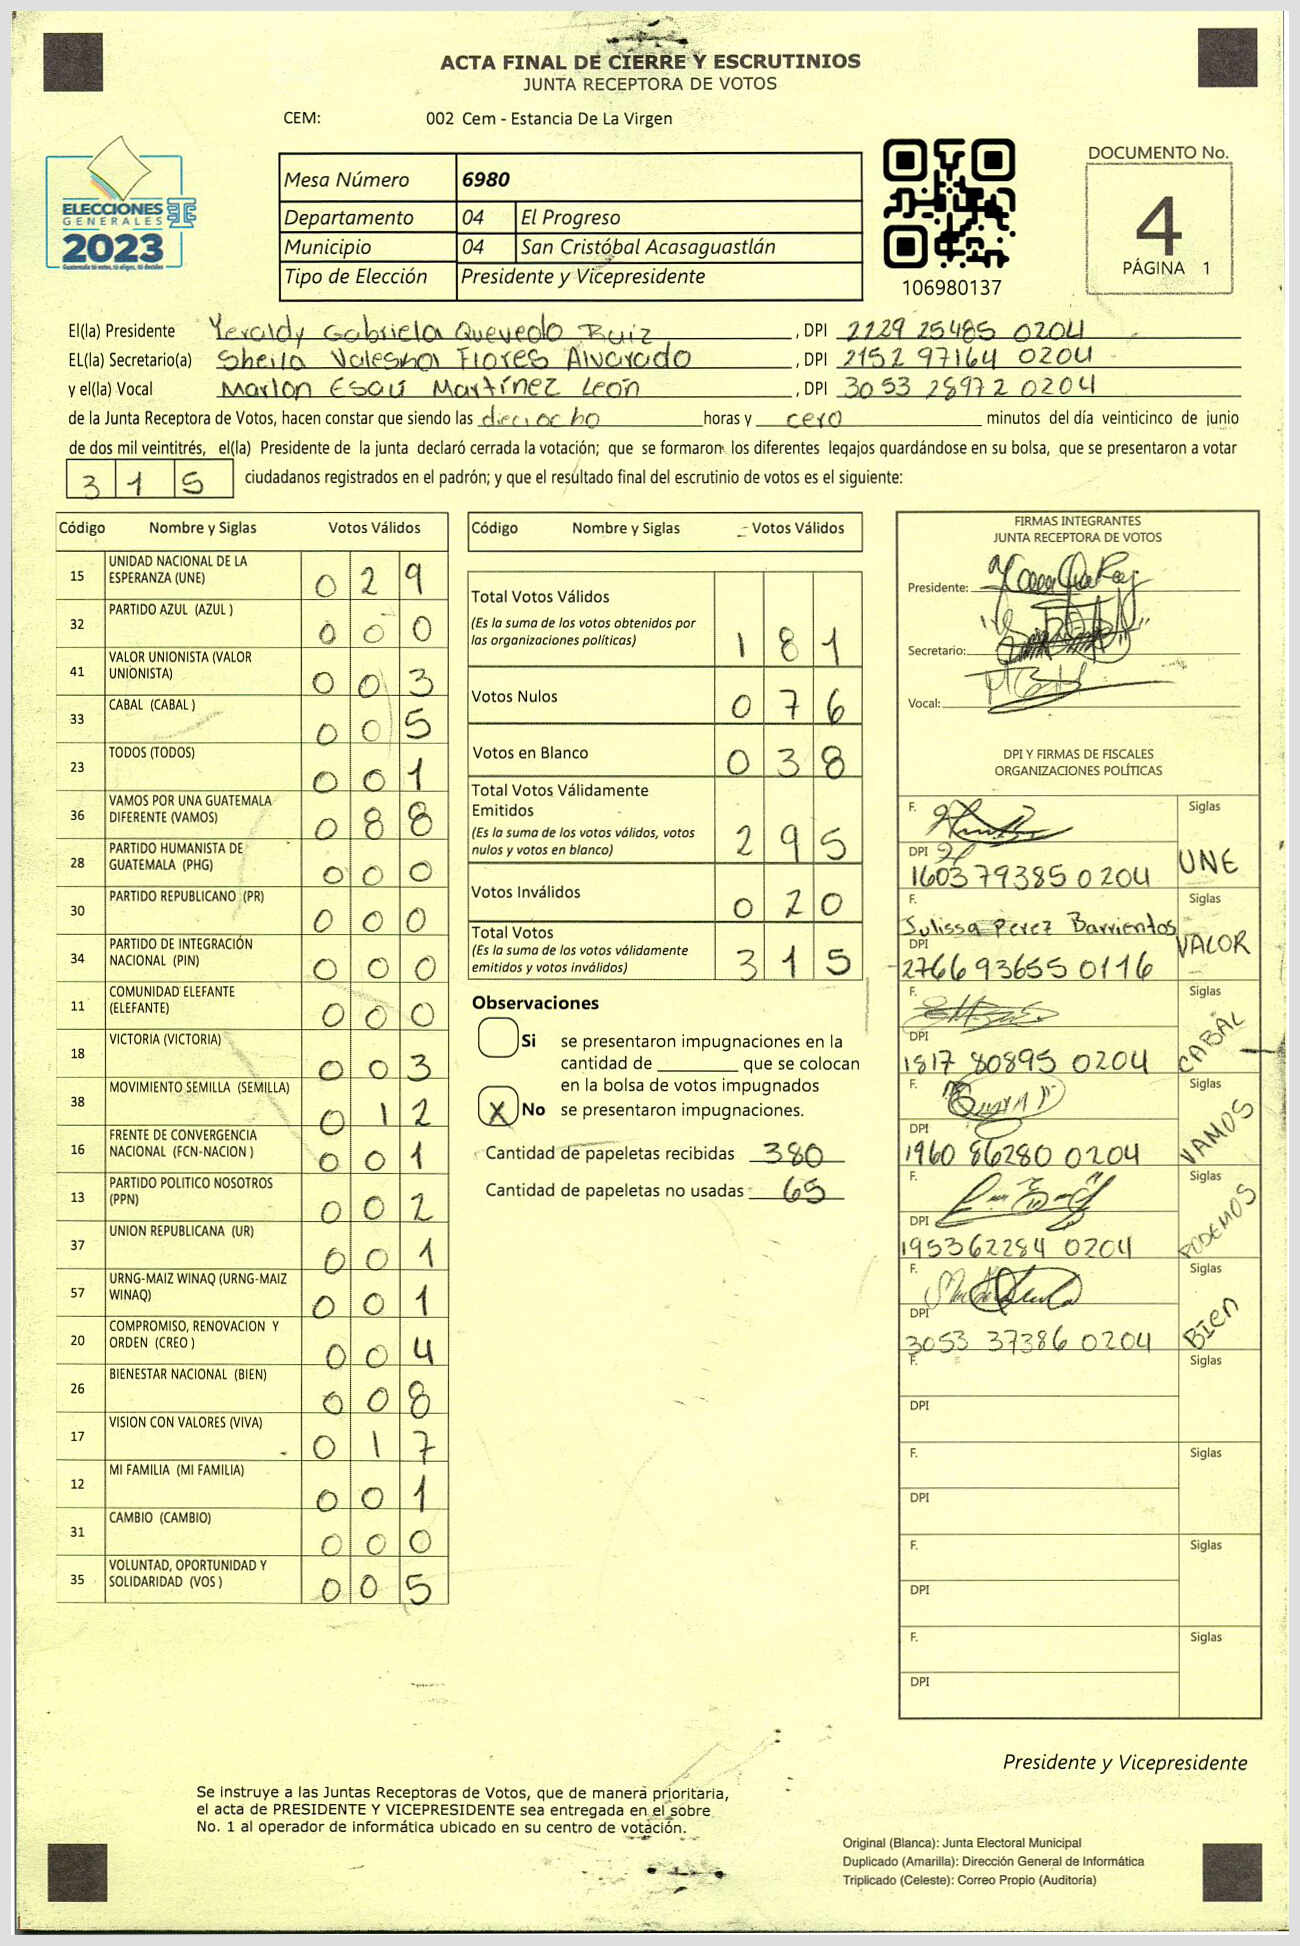 ACTA FINAL DE CIERRE Y ESCRUTINIOS
JUNTA RECEPTORA DE VOTOS
CEM: 002 Cem - Estancia De La Virgen
ELECCIONES
GENERALES
2023
Mesa Número 6980
Departamento 04 El Progreso
Municipio 04 San Cristóbal Acasaguastlán
Tipo de Elección Presidente y Vicepresidente
106980137
DOCUMENTO No.
4
PÁGINA 1
El(la) Presidente Yeraldy Gabriela Quevedo Ruiz, DPI 2229 25485 0204
EL(la) Secretario(a) Sheila Valeska Flores Alvarado, DPI 2152 97164 0204
y el(la) Vocal Marlon Esaú Martínez León, DPI 3053 28972 0204
de la Junta Receptora de Votos, hacen constar que siendo las dieciocho horas y cero minutos del día veinticinco de junio
de dos mil veintitrés, el(la) Presidente de la junta declaró cerrada la votación; que se formaron los diferentes legajos quardándose en su bolsa, que se presentaron a votar
315 ciudadanos registrados en el padrón; y que el resultado final del escrutinio de votos es el siguiente:
Código Nombre y Siglas Votos Válidos
15 UNIDAD NACIONAL DE LA ESPERANZA (UNE) 0 2 9
32 PARTIDO AZUL (AZUL ) 0 0 0
41 VALOR UNIONISTA (VALOR UNIONISTA) 0 0 3
33 CABAL (CABAL ) 0 0 5
23 TODOS (TODOS) 0 0 1
36 VAMOS POR UNA GUATEMALA DIFERENTE (VAMOS) 0 8 8
28 PARTIDO HUMANISTA DE GUATEMALA (PHG) 0 0 0
30 PARTIDO REPUBLICANO (PR) 0 0 0
34 PARTIDO DE INTEGRACIÓN NACIONAL (PIN) 0 0 0
11 COMUNIDAD ELEFANTE (ELEFANTE) 0 0 0
18 VICTORIA (VICTORIA) 0 0 3
38 MOVIMIENTO SEMILLA (SEMILLA) 0 1 2
16 FRENTE DE CONVERGENCIA NACIONAL (FCN-NACION ) 0 0 1
13 PARTIDO POLITICO NOSOTROS (PPN) 0 0 2
37 UNION REPUBLICANA (UR) 0 0 1
57 URNG-MAIZ WINAQ (URNG-MAIZ WINAQ) 0 0 1
20 COMPROMISO, RENOVACION Y ORDEN (CREO ) 0 0 4
26 BIENESTAR NACIONAL (BIEN) 0 0 8
17 VISION CON VALORES (VIVA) 0 1 7
12 MI FAMILIA (MI FAMILIA) 0 0 1
31 CAMBIO (CAMBIO) 0 0 0
35 VOLUNTAD, OPORTUNIDAD Y SOLIDARIDAD (VOS ) 0 0 5
Código Nombre y Siglas Votos Válidos
Total Votos Válidos 1 8 1
(Es la suma de los votos obtenidos por
las organizaciones políticas)
Votos Nulos 0 7 6
Votos en Blanco 0 3 8
Total Votos Válidamente
Emitidos 2 9 5
(Es la suma de los votos válidos, votos
nulos y votos en blanco)
Votos Inválidos 0 2 0
Total Votos 3 1 5
(Es la suma de los votos válidamente
emitidos y votos inválidos)
Observaciones
Si se presentaron impugnaciones en la
cantidad de ________ que se colocan
en la bolsa de votos impugnados
X No se presentaron impugnaciones.
Cantidad de papeletas recibidas 380
Cantidad de papeletas no usadas 65
FIRMAS INTEGRANTES
JUNTA RECEPTORA DE VOTOS
Presidente:
Secretario:
Vocal:
DPI Y FIRMAS DE FISCALES
ORGANIZACIONES POLÍTICAS
F. Siglas
DPI 1603 79385 0204 UNE
F. Julissa Perez Barrientos Siglas
DPI 2766 93655 0116 VALOR
F. Siglas
DPI 1817 80895 0204 CABAL
F. Siglas
DPI 1960 86280 0204 VAMOS
F. Siglas
DPI 1953 62284 0204 PODEMOS
F. Siglas
DPI 3053 37386 0204 BIEN
F. Siglas
DPI
F. Siglas
DPI
F. Siglas
DPI
F. Siglas
DPI
Presidente y Vicepresidente
Se instruye a las Juntas Receptoras de Votos, que de manera prioritaria,
el acta de PRESIDENTE Y VICEPRESIDENTE sea entregada en el sobre
No. 1 al operador de informática ubicado en su centro de votación.
Original (Blanca): Junta Electoral Municipal
Duplicado (Amarilla): Dirección General de Informática
Triplicado (Celeste): Correo Propio (Auditoría)